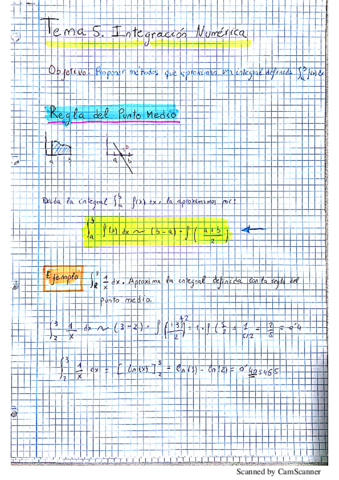 Tema 5. Integración Numérica
Objetivo: Proponer métodos que aproximen una integral definida ∫_a^b f(x)dx
Regla del Punto Medio
a b
a b
Dada la integral ∫_a^b f(x) dx. la aproximamos por:
∫_a^b f(x) dx ~ (b-a) · f((a+b)/2)
Ejemplo ∫_2^3 1/x dx. Aproxima la integral definida con la regla del
punto medio.
∫_2^3 1/x dx ~ (3-2) · f(
= 1 · f(5/2) = 1/(5/2) = 2/5 = 0'4
∫_2^3 1/x dx = [ln(x)]_2^3 = ln(3) - ln(2) = 0'405465
Scanned by CamScanner